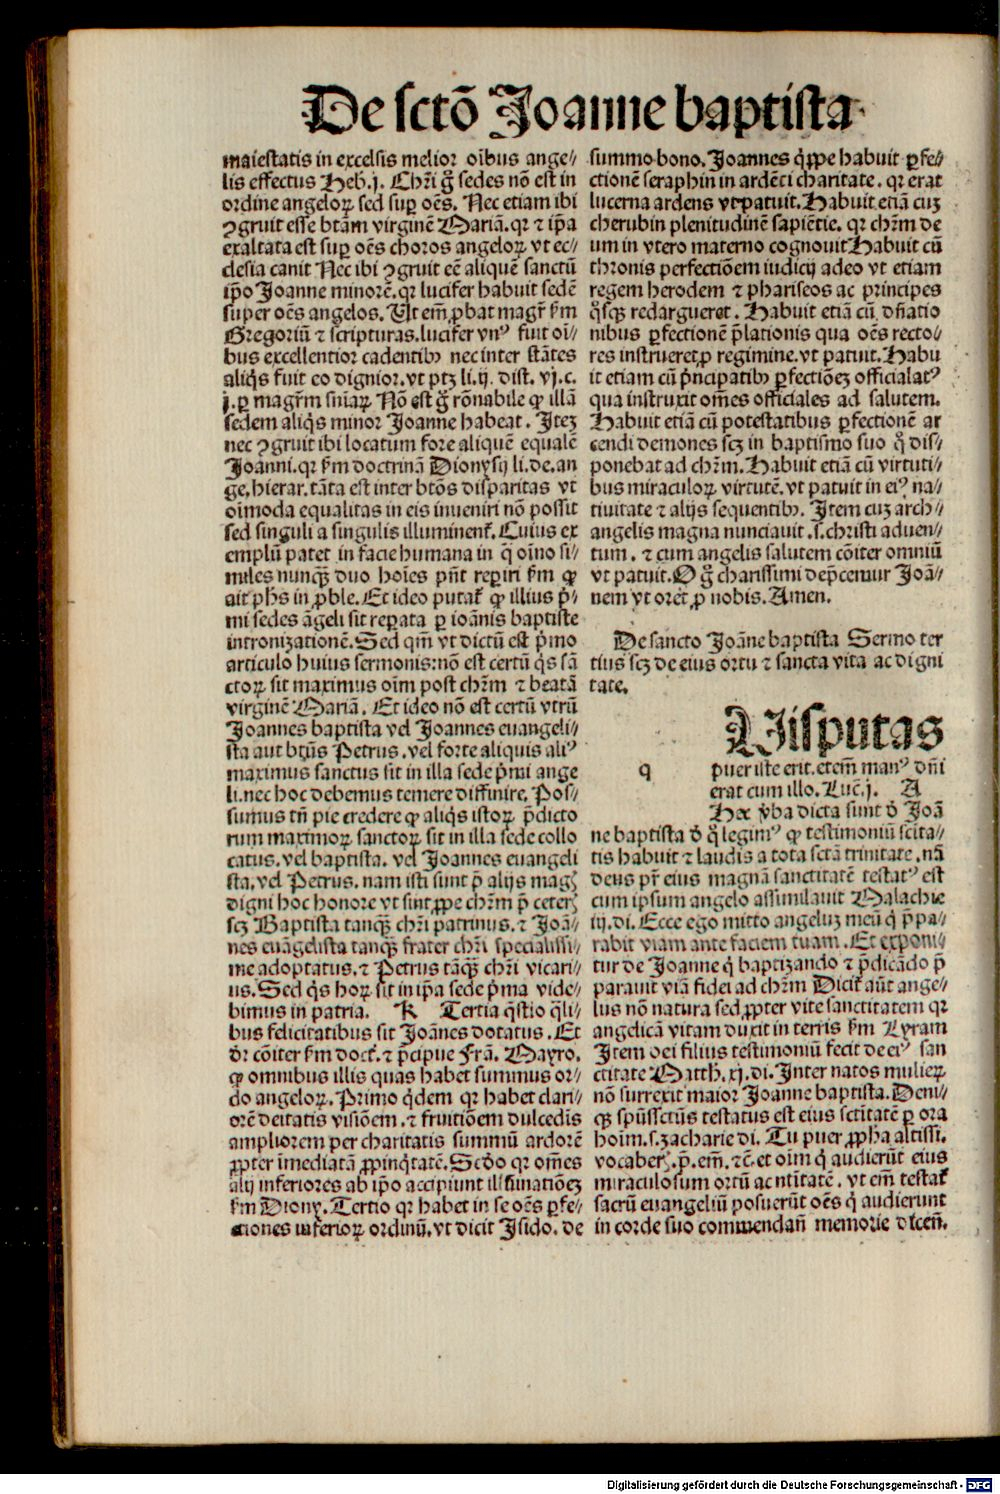 De sctō Joanne baptista
maiestatis in excelsis melior oībus ange//
lis effectus Heb.j. Chri̅ gͦ sedes nō est in
ordine angeloꝝ sed suꝑ oēs. Nec etiam ibi
ꝯgruit esse btām virginē Mariā.qr ⁊ ip̄a
exaltata est suꝑ oēs choros angeloꝝ vt ec//
clesia canit Nec ibi ꝯgruit eē aliquē sanctū
ip̄o Joanne minorē.qr lucifer habuit sedē
super oēs angelos. Ut em̄ ꝓbat magr̄ ẜm
Gregoriū ⁊ scripturas.lucifer vnꝰ fuit oī//
bus excellentior cadentibꝫ nec inter stātes
aliqͥs fuit eo dignior.vt ptꝫ li.ij. dist. vj.c.
j.ꝑ magr̄m sniaꝝ. Nō est gͦ rōnabile ꝙ illā
sedem aliqͥs minor Joanne habeat. Iteꝫ
nec ꝯgruit ibi locatum fore aliquē equalē
Joanni.qr ẜm doctrinā Dionysij li.de.an
ge.hierar.tāta est inter btōs disparitas vt
oīmoda equalitas in eis inveniri nō possit
sed singuli a singulis illuminenť. Cuius ex
emplū patet in facie humana in qͣ oīno si//
miles nunqꝫ duo hoīes pn̄t reꝑiri ẜm ꝙ
ait ph̄s in ꝓble. Et ideo putať ꝙ illius p̄//
mi sedes āgeli sit reꝑata ꝑ ioānis baptiste
intronizationē. Sed qm̄ vt dictū est p̄mo
articulo huius sermonis: nō est certū qͥs sā
ctoꝝ sit maximus oīm post chr̄m ⁊ beatā
virginē Mariā. Et ideo nō est certū vtrū
Joannes baptista vel Joannes euangeli//
sta aut btūs Petrus. vel forte aliquis aliꝰ
maximus sanctus sit in illa sede p̄mi ange
li.nec hoc debemus temere diffinire. Pos//
sumus tn̄ pie credere ꝙ aliqͥs istoꝝ p̄dicto
rum maximoꝝ sanctoꝝ sit in illa sede collo
catus. vel baptista. vel Joannes euangeli
sta. vel Petrus. nam isti sunt p̄ alijs mag̛
digni hoc honore vt sint ꝓpe chr̄m p̄ ceter̛
scꝫ Baptista tanqꝫ chri̅ patrinus. ⁊ Joā//
nes euāgelista tanqꝫ frater chri̅ specialissi//
me adoptatus. ⁊ Petrus tāqꝫ chri̅ vicari//
us. Sed qͥs hoꝝ sit in ip̄a sede p̄ma vide//
bimus in patria. K Tertia qͣstio qͥli//
bus felicitatibus sit Joānes dotatus. Et
ꝺr̄ cōiter ẜm docť. ⁊ p̄cipue Frā. Mayro.
ꝙ omnibus illis quas habet summus or//
do angeloꝝ. Primo qͥdem qr habet clari//
orē deitatis visiōem. ⁊ fruitiōem dulcedis
ampliorem per charitatis summū ardorē
ꝓpter īmediatā ꝓpinqͥtatē. Scꝺo qr omēs
alij inferiores ab ip̄o accipiunt illuminatiōeꝫ
ẜm Diony. Tertio qr habet in se oēs ꝑfe//
ctiones inferioꝝ ordinū. vt dicit Isido. de
summo bono. Joannes qͥppe habuit ꝑfe//
ctionē seraphin̄ in ardēti charitate. qr erat
lucerna ardens vt patuit. Habuit etiā cuꝫ
cherubin plenitudinē sapiētie. qr chr̄m de
um in vtero materno cognouit Habuit cū
thronis perfectiōem iudicij adeo vt etiam
regem herodem ⁊ phariseos ac principes
qͦsqꝫ redargueret. Habuit etiā cū dn̄atio
nibus ꝑfectionē p̄lationis qua oēs recto//
res instrueret ꝓ regimine. vt patuit. Habu
it etiam cū p̄ncipatibꝫ ꝑfectiōeꝫ officialatꝰ
qua instruxit omēs officiales ad salutem.
Habuit etiā cū potestatibus ꝑfectionē ar
cendi demones scꝫ in baptismo suo qͦ dis//
ponebat ad chr̄m. Habuit etiā cū virtuti//
bus miraculoꝝ virtutē. vt patuit in eiꝰ na//
tiuitate ⁊ alijs sequentibꝫ. Item cuꝫ arch//
angelis magna nunciauit .s. christi aduen//
tum. ⁊ cum angelis salutem cōiter omniū
vt patuit. O gͦ charissimi dep̄cemur Joā//
nem vt oret ꝓ nobis. Amen.
De sancto Joāne baptista Sermo ter
tius scꝫ de eius ortu ⁊ sancta vita ac digni
tate.
Uisputas
q puer iste erit. etem̄ manꝰ dn̄i
erat cum illo. Luc̄.j. A
Hec v̄ba dicta sunt ꝺ̄ Joā
ne baptista ꝺ̄ qͦ legimꝰ ꝙ testimoniū scita//
tis habuit ⁊ laudis a tota sctā trinitate. nā
deus pr̄ eius magnā sanctitatē testatꝰ est
cum ipsum angelo assimilauit Malachie
iij.di. Ecce ego mitto angeluꝫ meū qͥ p̄pa//
rabit viam ante faciem tuam. Et exponi//
tur de Joanne qͥ baptizando ⁊ p̄dicādo p̄
parauit viā fidei ad chr̄m Dicit aūt ange//
lus nō natura sed ꝓpter vite sanctitatem qr
angelicā vitam duxit in terris ẜm Lyram
Item dei filius testimoniū fecit de eiꝰ san
ctitate Matth.xj.di. Inter natos mulieꝝ
nō surrexit maior Joanne baptista. Deni//
qꝫ spūssctūs testatus est eius sctītatē ꝑ ora
hoīm.s.zacharie di. Tu puer ꝓpha altissi.
vocaber̛.p̄.em̄.⁊c̄. et oīm qͥ audierūt eius
miraculosum ortū ac sctītatē. vt em̄ testať
sacrū euangeliū posuerūt oēs qͥ audierunt
in corde suo commendan̄ memorie dicen̄.
Digitalisierung gefördert durch die Deutsche Forschungsgemeinschaft - DFG